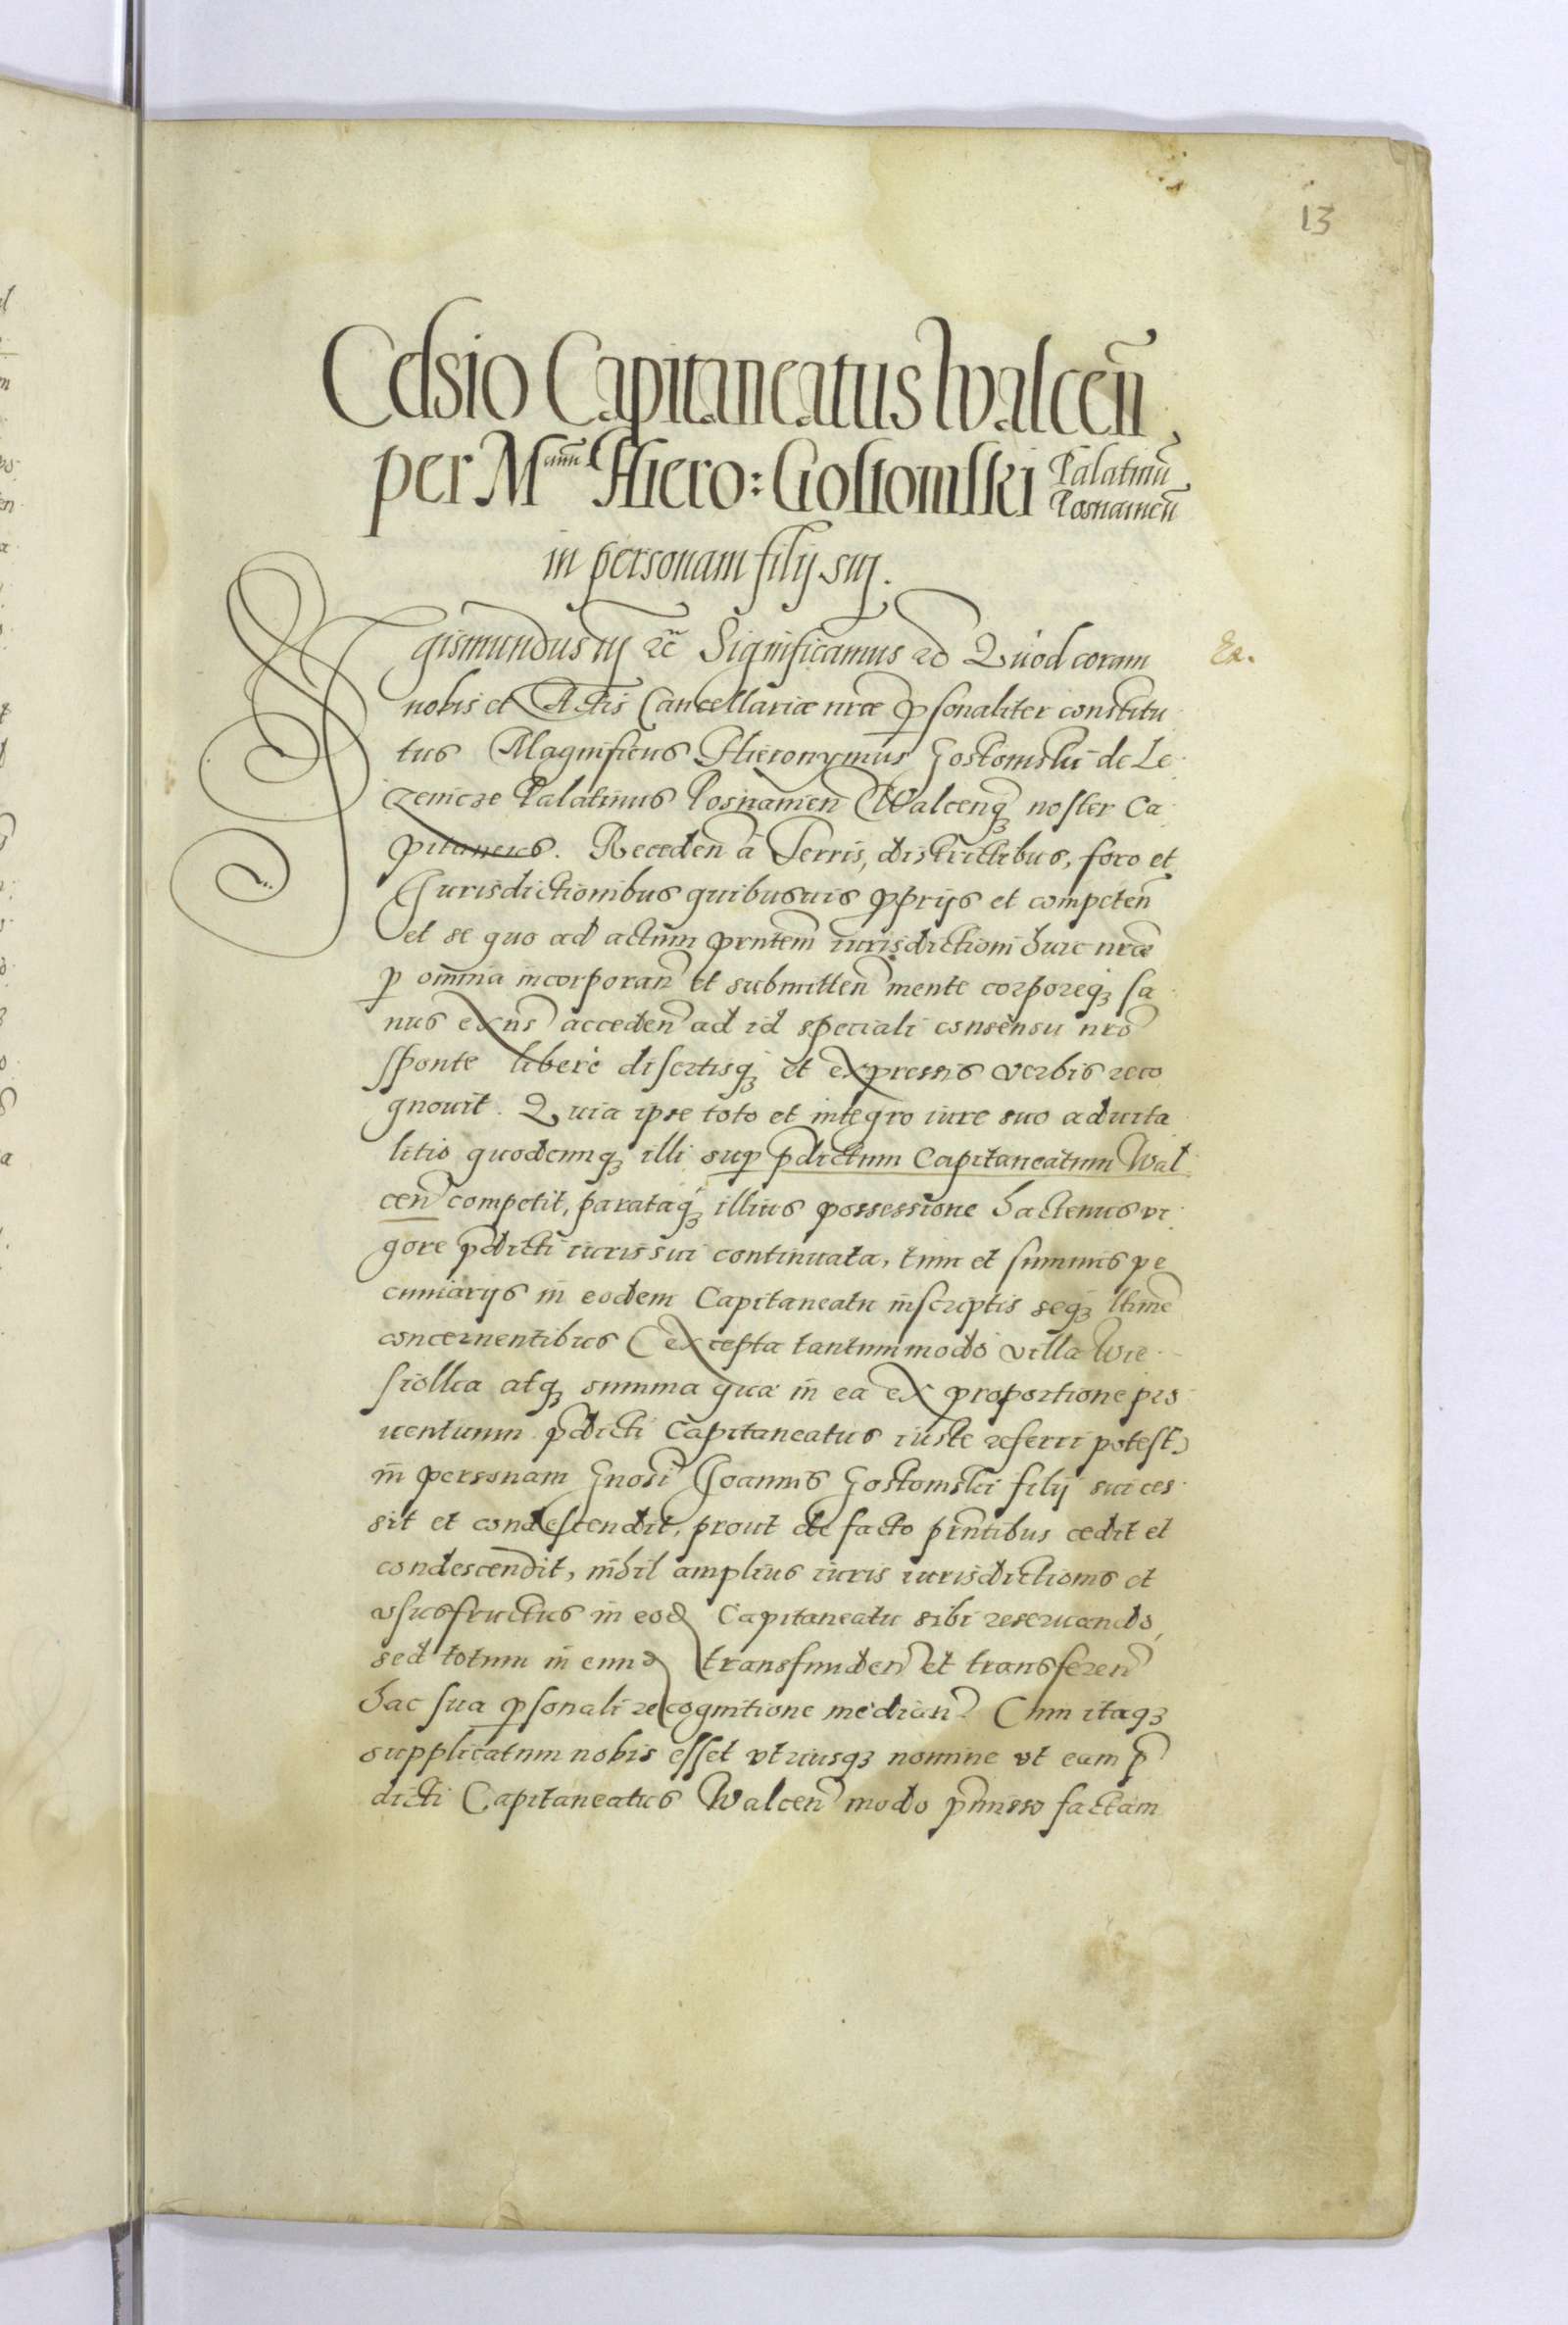 13
Cessio Capitaneatus Walceñ.
per M̃cum Hiero: Gostomski Palatinũ
Posnanieñ
in personam filij suj.
Sigismundus iij etc̃ Significamus etc Quod coram
Ex.
nobis et Actis Cancellariæ nr̃æ ꝑsonaliter constitu
tus Magnificus Hieronymus Gostomski de Le
zenicze Palatinus Posnanieñ Walcenꝗ noster Ca
pitaneus. Recedeñ à Terris, districtibus, foro et
Iurisdictionibus quibusuis ꝓprijs et competeñ
et se quo ad actum pr̃ntem iurisdictioni huic nr̃æ
ꝑ omnia incorporañ et submitteñ mente corporeꝗ sa
nus exñs accedeñ ad id speciali consensu nr̃o
sponte liberè disertisꝗ et expressis verbis reco
gnouit. Quia ipse toto et integro iure suo aduita
litio quodcunꝗ illi suꝑ p̃dictum Capitaneatum Wal
ceñ competit, parataꝗ illius possessione hactenus vi
gore p̃dicti iuris sui continuata, tum et summis pe
cuniarijs in eodem Capitaneatu inscriptis seꝗ ltime
concernentibus (excepta tantummodo villa Wie
siolka atꝗ summa quæ in ea ex proportione pro
uentuum p̃dicti Capitaneatus iuste referri potest)
in personam Gnosi Ioannis Gostomski filij sui ces
sit et condescendit, prout de facto pr̃ntibus cedit et
condescendit, nihil amplius iuris iurisdictionis et
vsusfructus in eod Capitaneatu sibi reseruando,
sed totum in eund transfundeñ et transfereñ
hac sua ꝑsonali recognitione mediañ. Cum itaꝗ
supplicatum nobis esset vtriusꝗ nomine vt eam p̃
dicti Capitaneatus Walceñ modo p̃misso factam